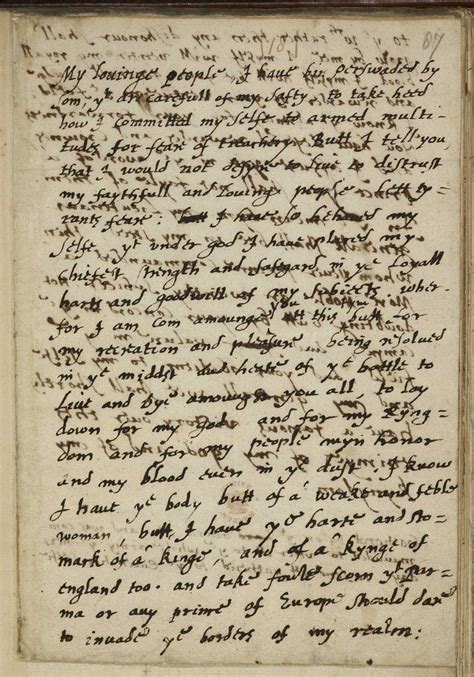 87
My louinge people, I haue bin perswaded by
som, yt are carefull of my safty, to take heed
how I committed my selfe to armed multi-
tudes for fear of treachery. Butt I tell you,
that I would not desyre to liue to distrust
my faythfull and louing people. lett ty-
rants feare: I haue so behaued my
selfe yt under god I haue placed my
chiefest strength and safgard in ye loyall
harts and goodwill of my subiects. wher-
for I am com amounge you att this butt for
my recreation and pleasure being resolued
in ye middst and heate of ye battle to
liue and dye amoungst you all to lay
down for my god and for my kyng-
dom and for my people myn honor
and my blood euen in ye dust I know
I haue ye body butt of a weake and feble
woman, butt I haue ye harte and sto-
mark of a kinge, and of a kynge of
england too. and take foule scorn yt par-
ma or any prince of Europe should dare
to inuade ye borders of my realm: